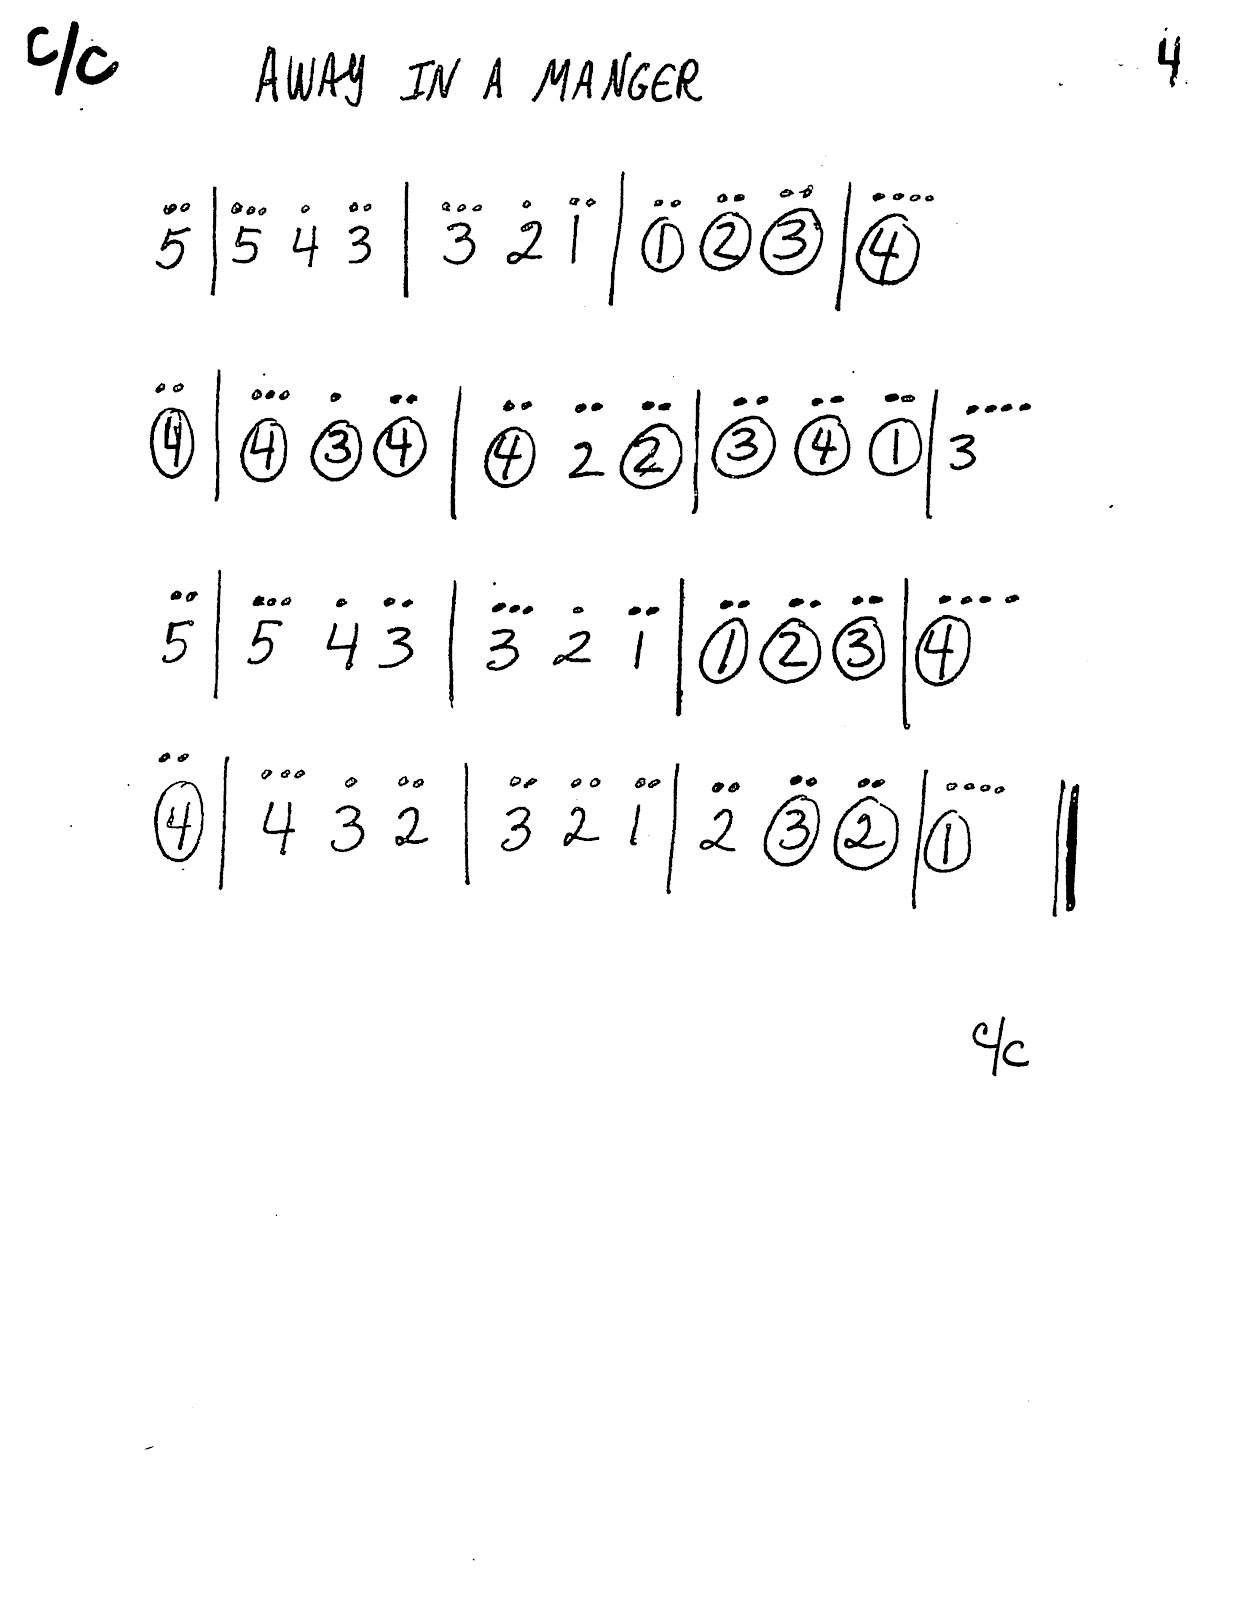 C/C AWAY IN A MANGER 4
5 | 5 4 3 | 3 2 1 | ① ② ③ | ④
④ | ④ ③ ④ | ④ 2 ② | ③ ④ ① | 3
5 | 5 4 3 | 3 2 1 | ① ② ③ | ④
④ | 4 3 2 | 3 2 1 | 2 ③ ② | ①
C/C